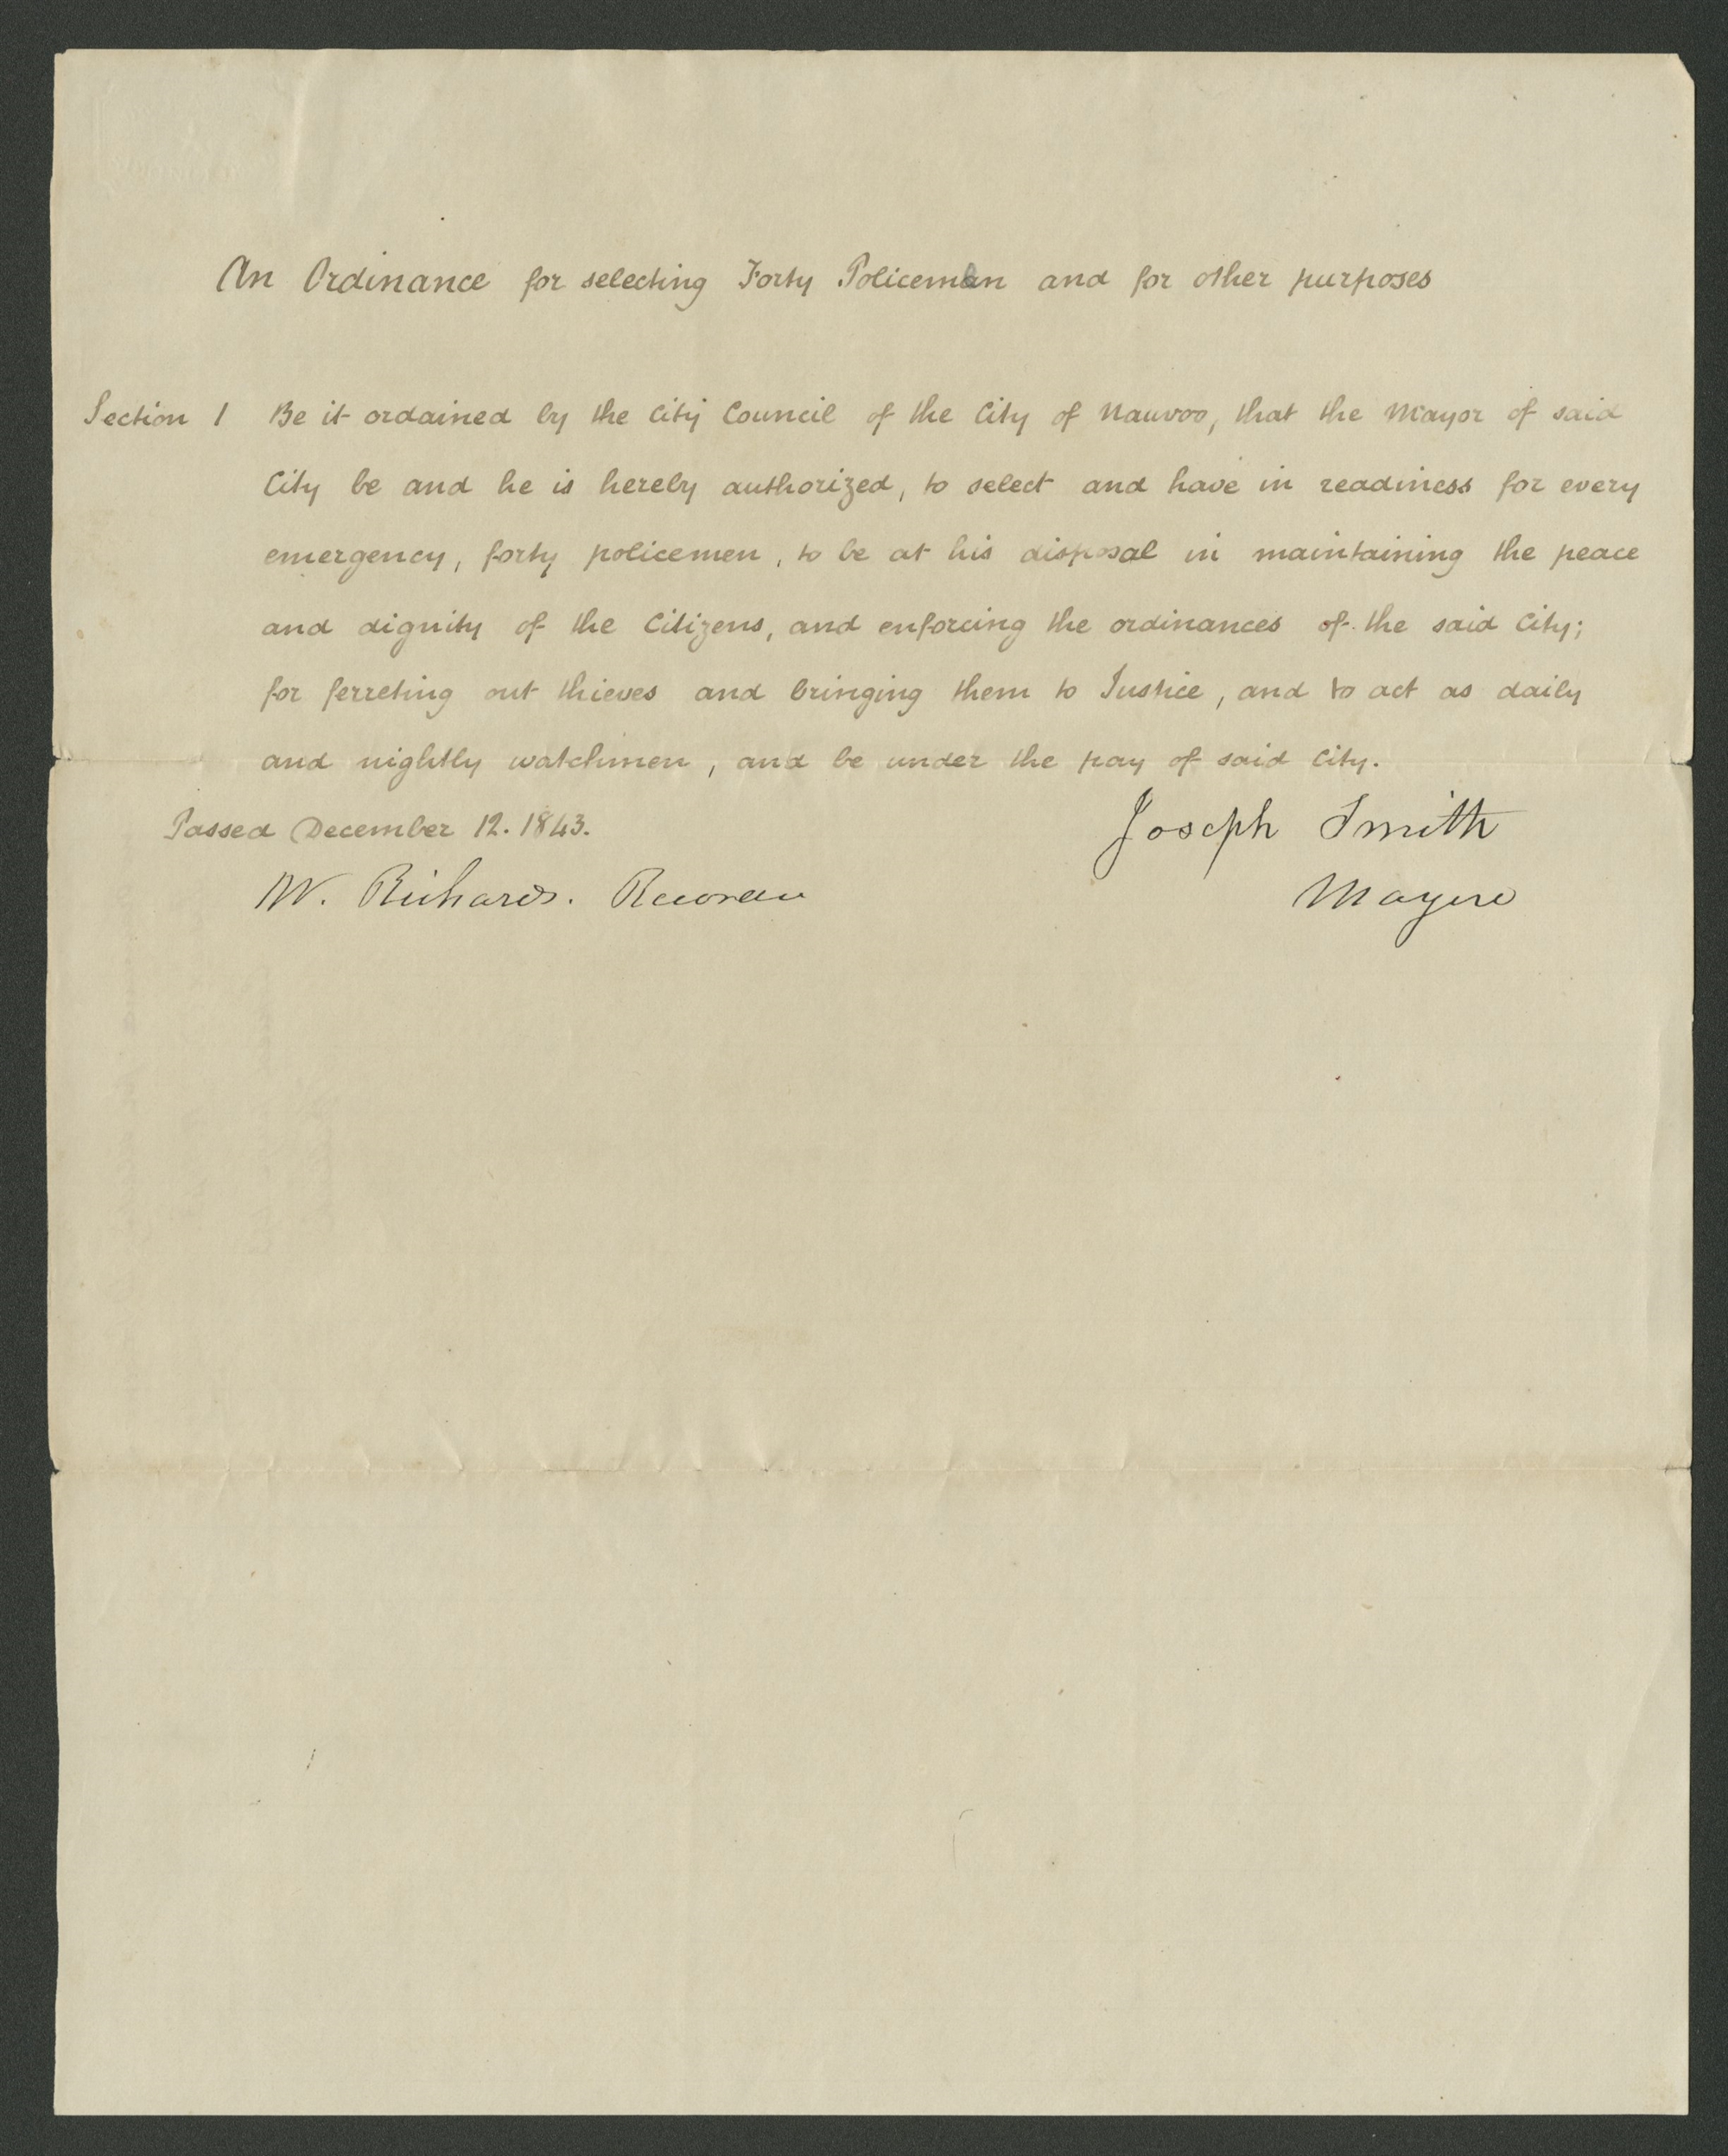 An Ordinance for selecting Forty Policemen and for other purposes
Section 1 Be it ordained by the City Council of the City of Nauvoo, that the Mayor of said
City be and he is hereby authorized, to select and have in readiness for every
emergency, forty policemen, to be at his disposal in maintaining the peace
and dignity of the Citizens, and enforcing the ordinances of the said City;
for ferreting out thieves and bringing them to Justice, and to act as daily
and nightly watchmen, and be under the pay of said City.
Passed December 12. 1843.
Joseph Smith
W. Richards. Recorder
Mayor